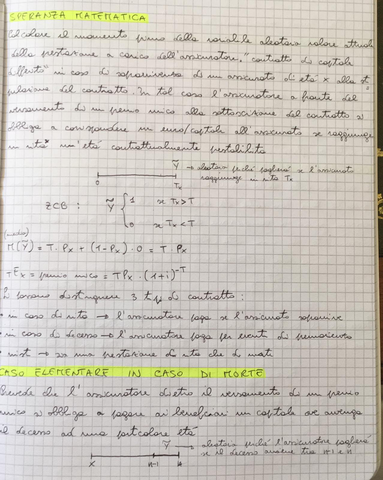 SPERANZA MATEMATICA
Calcolare il momento primo della variabile aleatoria valore attuale
della prestazione a carico dell'assicuratore, "contratto di capitale
differito" in caso di sopravvivenza di un assicurato di età x alla sti
pulazione del contratto. In tal caso l'assicuratore a fronte del
versamento di un premio unico alla sottoscrizione del contratto si
obbliga a corrispondere un euro/capitale all'assicurato se raggiunge
in vita un'età contrattualmente prestabilita
Ỹ → aleatorio perché pagherà se l'assicurato
raggiunge in vita Tx
0 Tx
ZCB : Ỹ { 1 se Tx > T
0 se Tx < T
(media)
M(Ỹ) = T·Px + (1-Px)·0 = T·Px
TEx = premio unico = TPx · (1+i)^-T
Si possono distinguere 3 tipi di contratto :
• in caso di vita → l'assicuratore paga se l'assicurato sopravvive
• in caso di decesso → l'assicuratore paga per eventi di premorienza
• misti → sia una prestazione di vita che di morte
CASO ELEMENTARE IN CASO DI MORTE
Prevede che l'assicuratore dietro il versamento di un premio
unico si obbliga a pagare ai beneficiari un capitale ove avvenga
il decesso ad una particolare età
Ỹ → aleatorio perché l'assicuratore pagherà
se il decesso avviene tra n-1 e n
x n-1 n